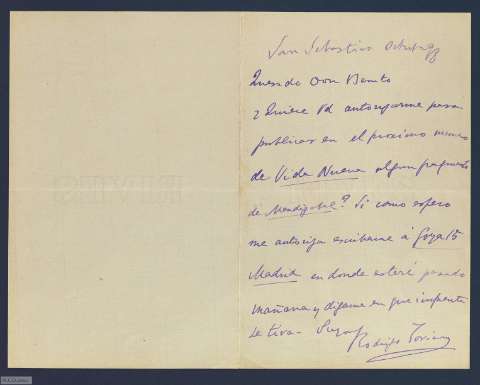 San Sebastian Octubre 98
Querido Don Benito
¿Quiere Vd autorizarme para
publicar en el proximo numero
de Vida Nueva algun fragmento
de Mendizabal? Si como espero
me autoriza escribame á Goya 15
Madrid en donde estaré pasado
mañana y digame en que imprenta
se tira - Suyo
Rodrigo Soriano